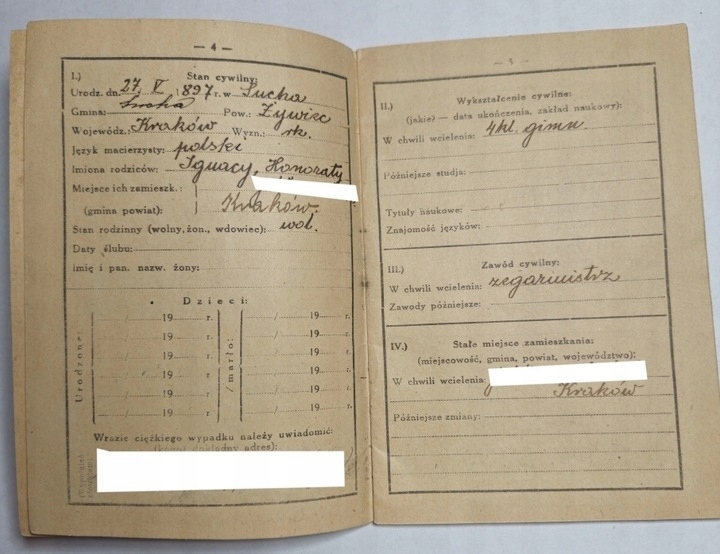 — 4 —
I.) Stan cywilny:
Urodz. dn. 27. V 1897 r. w Sucha
Gmina: Sucha Pow.: Żywiec
Wojewódz.: Kraków Wyzn.: rk.
Język macierzysty: polski
Imiona rodziców: Ignacy, Honoraty
Miejsce ich zamieszk.:
(gmina powiat): Kraków.
Stan rodzinny (wolny, żon., wdowiec): wol.
Daty ślubu:
imię i pan. nazw. żony:
Dzieci:
Urodzone:
19 r.
19 r.
19 r.
19 r.
19 r.
/marło:
/ 19 r.
/ 19 r.
/ 19 r.
/ 19 r.
/ 19 r.
W razie ciężkiego wypadku należy uwiadomić:
(kogo) dokładny adres):
— 5 —
II.) Wykształcenie cywilne:
(jakie) — data ukończenia, zakład naukowy):
W chwili wcielenia: 4 kl. gimn
Późniejsze studja:
Tytuły naukowe:
Znajomość języków:
III.) Zawód cywilny:
W chwili wcielenia: zegarmistrz
Zawody późniejsze:
IV.) Stałe miejsce zamieszkania:
(miejscowość, gmina, powiat, województwo):
W chwili wcielenia:
Kraków
Późniejsze zmiany: